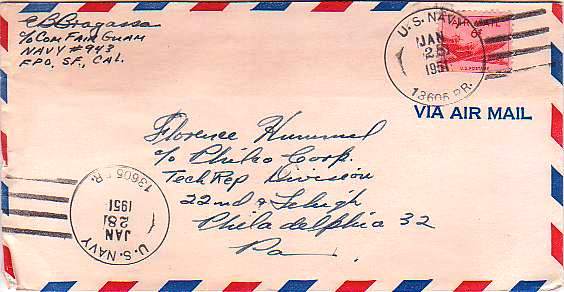 C B Bragassa
c/o ComFair Guam
Navy #943
FPO, SF, Cal.
U.S. NAVY
JAN
28
1951
13605 BR.
AIR MAIL
6¢
U.S. POSTAGE
VIA AIR MAIL
Florence Hummel
c/o Philco Corp.
Tech Rep Division
22nd & Lehigh
Philadelphia 32
Pa.
U.S. NAVY
JAN
28
1951
13605 BR.